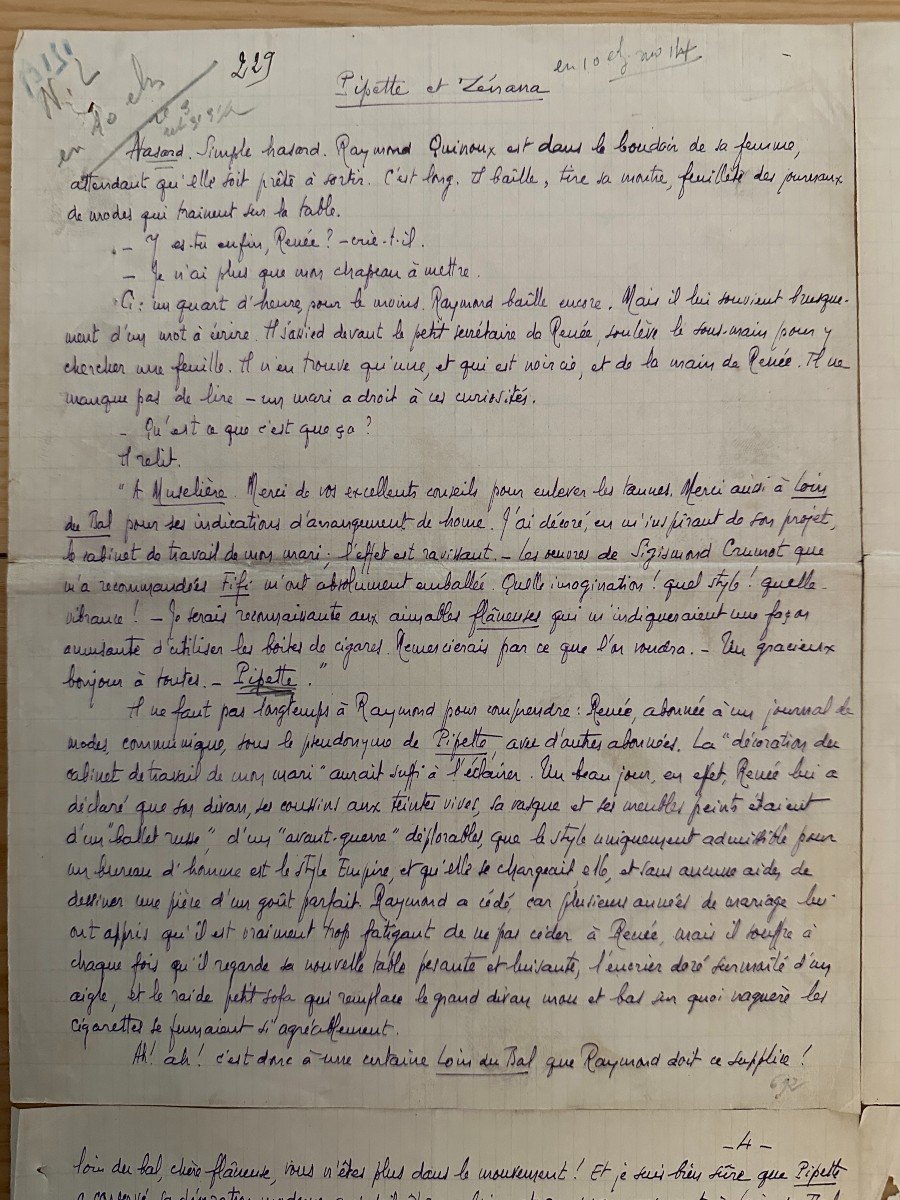 229
Pipette et Zénana
Hasard. Simple hasard. Raymond Quinoux est dans le boudoir de sa femme,
attendant qu'elle soit prête à sortir. C'est long. Il bâille, tire sa montre, feuillete des journaux
de modes qui trainent sur la table.
– Y es-tu enfin, Renée? – crie-t-il.
– Je n'ai plus que mon chapeau à mettre.
Ci: un quart d'heure, pour le moins. Raymond baille encore. Mais il lui souvient brusque-
ment d'un mot à écrire. Il s'assied devant le petit secrétaire de Renée, soulève le sous-main pour y
chercher une feuille. Il n'en trouve qu'une, et qui est noircie, et de la main de Renée. Il ne
manque pas de lire – un mari a droit à ces curiosités.
– Qu'est ce que c'est que ça?
Il relit.
"A Muselière. Merci de vos excellents conseils pour enlever les tannes. Merci aussi à Loin
du Bal pour ses indications d'arrangement de home. J'ai décoré, en m'inspirant de son projet,
le cabinet de travail de mon mari; l'effet est ravissant. – Les œuvres de Sigismond Crumot que
m'a recommandées Fifi m'ont absolument emballée. Quelle imagination! quel style! quelle
vibrance! – Je serais reconnaissante aux aimables flâneuses qui m'indiqueraient une façon
amusante d'utiliser les boites de cigares. Remercierais par ce que l'on voudra. – Un gracieux
bonjour à toutes. – Pipette."
Il ne faut pas longtemps à Raymond pour comprendre: Renée, abonnée à un journal de
modes, communique, sous le pseudonyme de Pipette, avec d'autres abonnées. La "décoration du
cabinet de travail de mon mari" aurait suffi à l'éclairer. Un beau jour, en effet, Renée lui a
déclaré que son divan, ses coussins aux teintes vives, sa vasque et ses meubles peints étaient
d'un "ballet russe" d'un "avant-guerre" déplorables, que le style uniquement admissible pour
un bureau d'homme est le style Empire, et qu'elle se chargeait, elle, et sans aucune aide, de
dessiner une pièce d'un goût parfait. Raymond a cédé, car plusieurs années de mariage lui
ont appris qu'il est vraiment trop fatigant de ne pas céder à Renée, mais il souffre à
chaque fois qu'il regarde sa nouvelle table pesante et luisante, l'encrier doré surmonté d'un
aigle, et le raide petit sofa qui remplace le grand divan mou et bas sur quoi naguère les
cigarettes se fumaient si agréablement.
Ah! ah! c'est donc à une certaine Loin du Bal que Raymond doit ce supplice!
– 4 –
loin du bal, chère flâneuse, vous n'êtes plus dans le mouvement! Et je suis bien sûre que Pipette